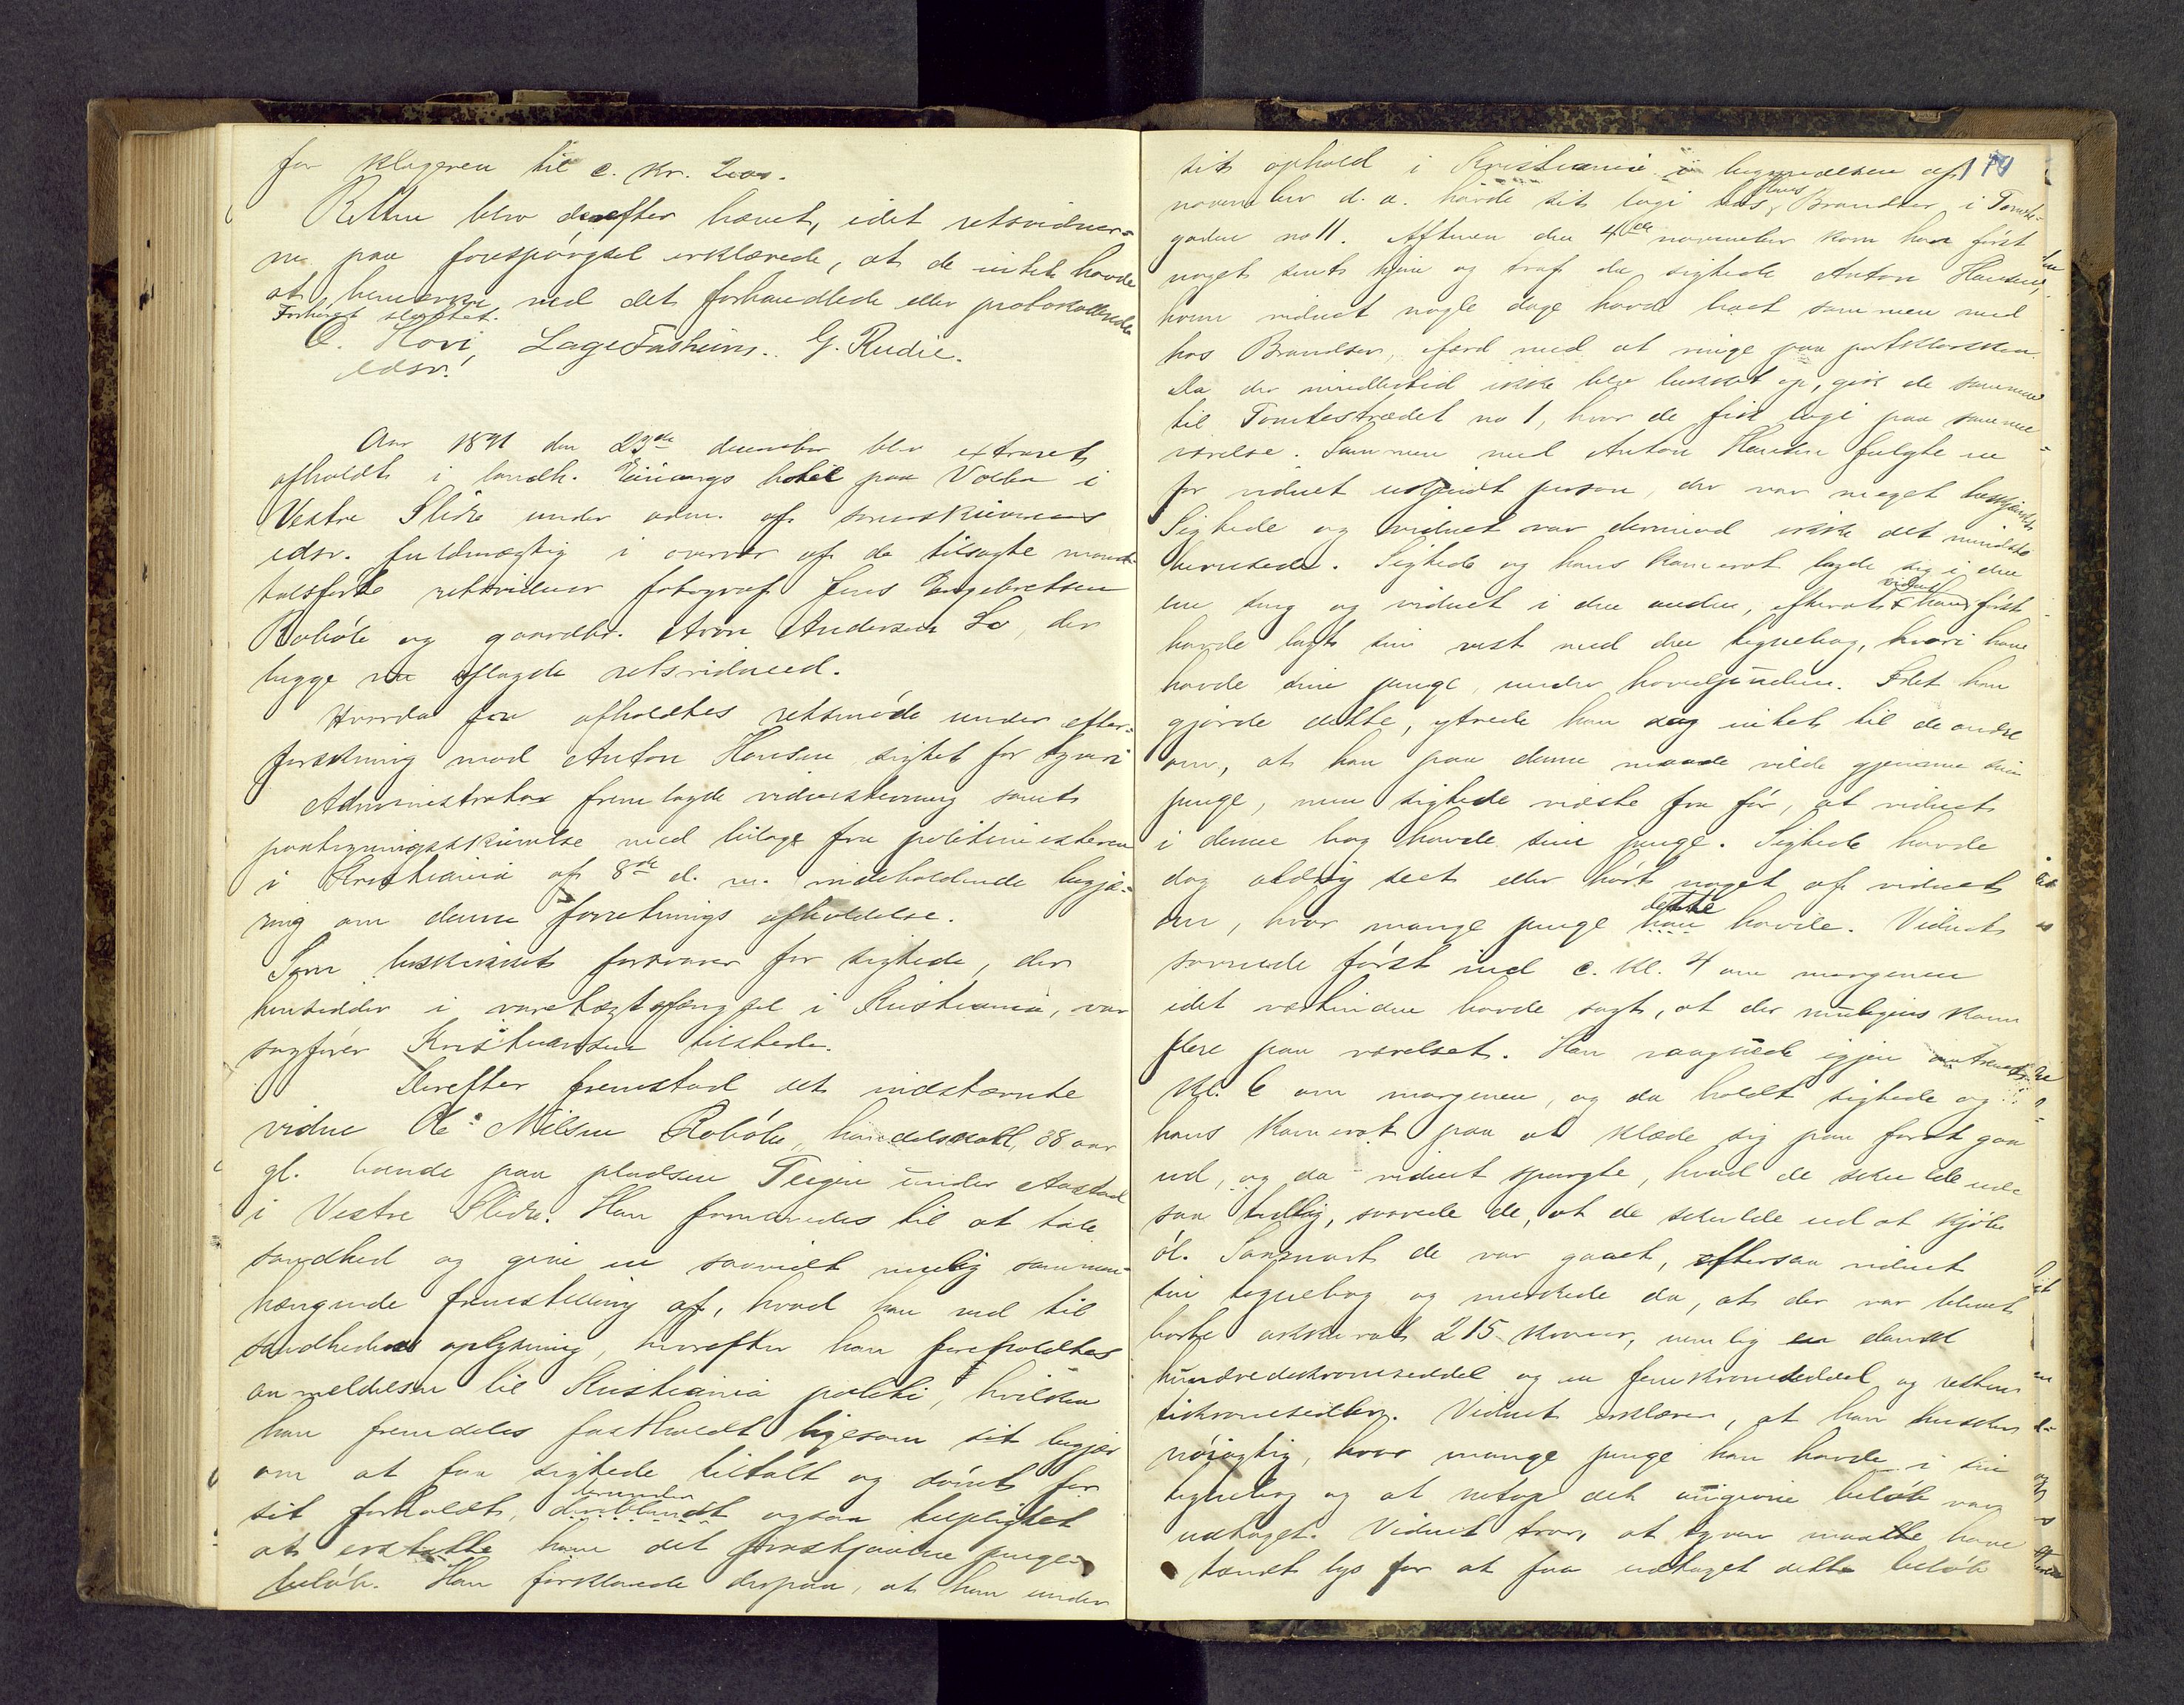 for klageren til c. kr. 2000.
Retten blev derefter hævet, idet retsvidner-
ne paa forespørgsel erklærede, at de intet havde
at bemærke ved det forhandlede eller protokollerede
Forhøret sluttet.
O. Hovi, Lage Fosheim. G. Rudie.
edsv.
Aar 1891 den 23de december blev extraret
afholdt i landh. Einangs hotel paa Volbu i
Vestre Slidre under adm. af sorenskriverens
edsv. fuldmægtig i overvær af de tilsagte mand-
talsførte retsvidner fotograf Jens Engebretsen
Robøle og gaardbr. Arne Andersen Lo, der
begge nu aflagde retsvidneed.
Hvorda for afholdtes retsmøde under efter-
forskning mod Anton Hansen sigtet for tyveri
Administrator fremlagde vidnestevning samt
paategningsskrivelse med bilage fra politimesteren
i Kristiania af 8de d. m. indeholdende begjæ-
ring om denne forretnings afholdelse.
Som beskikket forsvarer for sigtede, der
hensidder i varetægtsfængsel i Kristiania, var
sagfører Kristiansen tilstede.
Derefter fremstod det indstævnte
vidne Ole Nilsen Robøle, handelskarl, 38 aar
gl. boende paa pladsen Teigen under Aastad
i Vestre Slidre. Han formanedes til at tale
sandhed og give en saavidt mulig sammen-
hængende fremstilling af, hvad han ved til
sandhedens oplysning, hvorefter han foreholdtes
anmeldelsen til Kristiania politi, hvilken
han fremdeles fastholdt ligesom sit begjær
om at faa sigtede tiltalt og dømt for
herunder
sit forholdt, deriblandt ogsaa tilpligtet
at erstatte ham det frastjaalne penge-
beløb. Han forklarede derpaa, at han under
174
sit ophold i Kristiania i begyndelsen af
Hans
november d. a. havde sit logi hos Brandser i Tomte-
gaden no 11. Aftenen den 4de november kom han først
noget sent hjem og traf da sigtede Anton Hansen,
hvem vidnet nogle dage havde boet sammen med
hos Brandser, ifærd med at ringe paa portklokken.
Da der imidlertid ikke blev lukket op, gik de sammen
til Tomtestrædet no 1, hvor de fik logi paa samme
værelse. Sammen med Anton Hansen fulgte en
for vidnet ukjendt person, der var meget beskjænket
Sigtede og vidnet var derimod ikke det mindste
berusede. Sigtede og hans kamerat lagde sig i den
vidnet
ene seng og vidnet i den anden, efterat han først
havde lagt sin vest med den tegnebog, hvori han
havde sine penge, under hovedpuden. Idet han
gjorde dette, ytrede han sig intet til de andre
om, at han paa denne maade vilde gjemme sine
penge, men sigtede vidste fra før, at vidnet
i denne bog havde sine penge. Sigtede havde
dog aldrig seet eller hørt noget af vidnet
dette
om, hvor mange penge han havde. Vidnet
sovnede først ind c. kl. 4 om morgenen
idet vertinden havde sagt, at der muligens kom
flere paa værelset. Han vaagnede igjen omtrent
kl. 6 om morgenen, og da holdt sigtede og
hans kamerat paa at klæde sig paa forat gaa
ud, og da vidnet spurgte, hvad de skulde ude
saa tidlig, svarede de, at de skulde ud at kjøbe
øl. Saasnart de var gaaet, eftersaa vidnet
sin tegnebog og mærkede da, at der var blevet
borte akkurat 215 kroner, nemlig en dansk
hundredekroneseddel og en femkroneseddel og resten
tikronesedler. Vidnet erklærer, at han husker
nøiagtig, hvor mange penge han havde i sin
tegnebog og at netop det angivne beløb var
udtaget. Vidnet tror, at tyven maatte have
tændt lys for at faa udtaget dette beløb